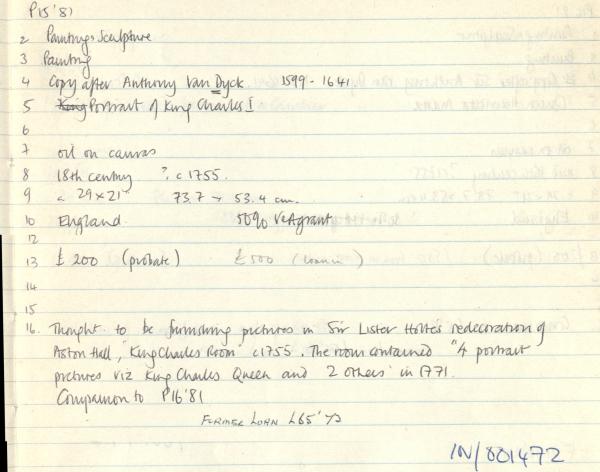 P15'81
2 Paintings Sculpture
3 Painting
4 Copy after Anthony Van Dyck 1599-1641
5 King Portrait of King Charles I
6
7 oil on canvas
8 18th century ? c 1755.
9 c 29 x 21" 73.7 x 53.4 cm.
10 England. 50% V&A grant
12
13 £200 (probate) £500
14
15
16. Thought to be furnishing pictures in Sir Lister Holte's redecoration of
Aston Hall, "King Charles Room" c1755. The room contained "4 portrait
pictures viz King Charles Queen and 2 others" in 1771.
Companion to P16'81
FORMER LOAN L65'73
IN/001472